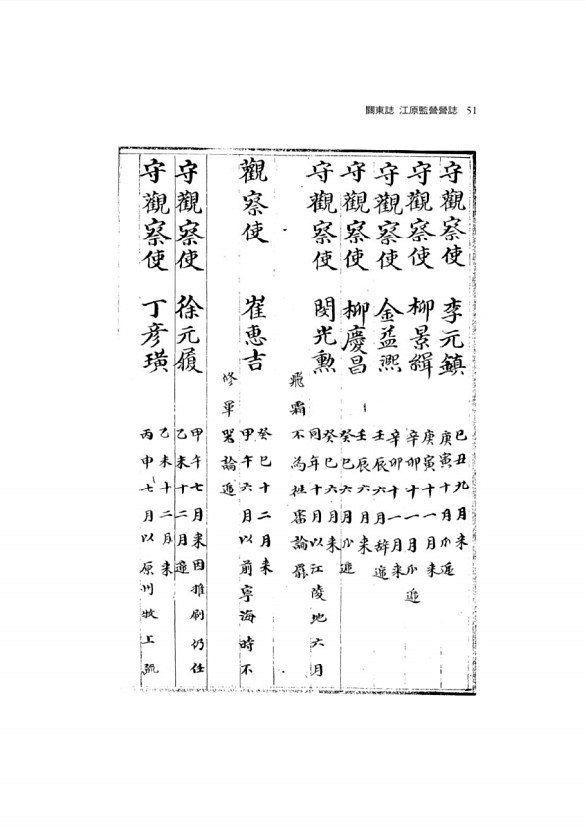 關東誌 江原監營營誌 51
守觀察使 李元鎮
己丑九月來
庚寅十月瓜遞
守觀察使 柳景緝
庚寅十一月來
辛卯十一月瓜遞
守觀察使 金益熙
辛卯十一月來
壬辰六月辞遞
守觀察使 柳慶昌
壬辰六月來
癸巳六月瓜遞
守觀察使 閔光勳
癸巳六月來
同年十月以江陵地六月
飛霜不為狀啓論罷
觀察使 崔惠吉
癸巳十二月來
甲午六月以前寧海時不
修軍器論遞
守觀察使 徐元履
甲午七月來因推刷仍任
乙未十二月遞
守觀察使 丁彦璜
乙未十二月來
丙申七月以原州牧上疏